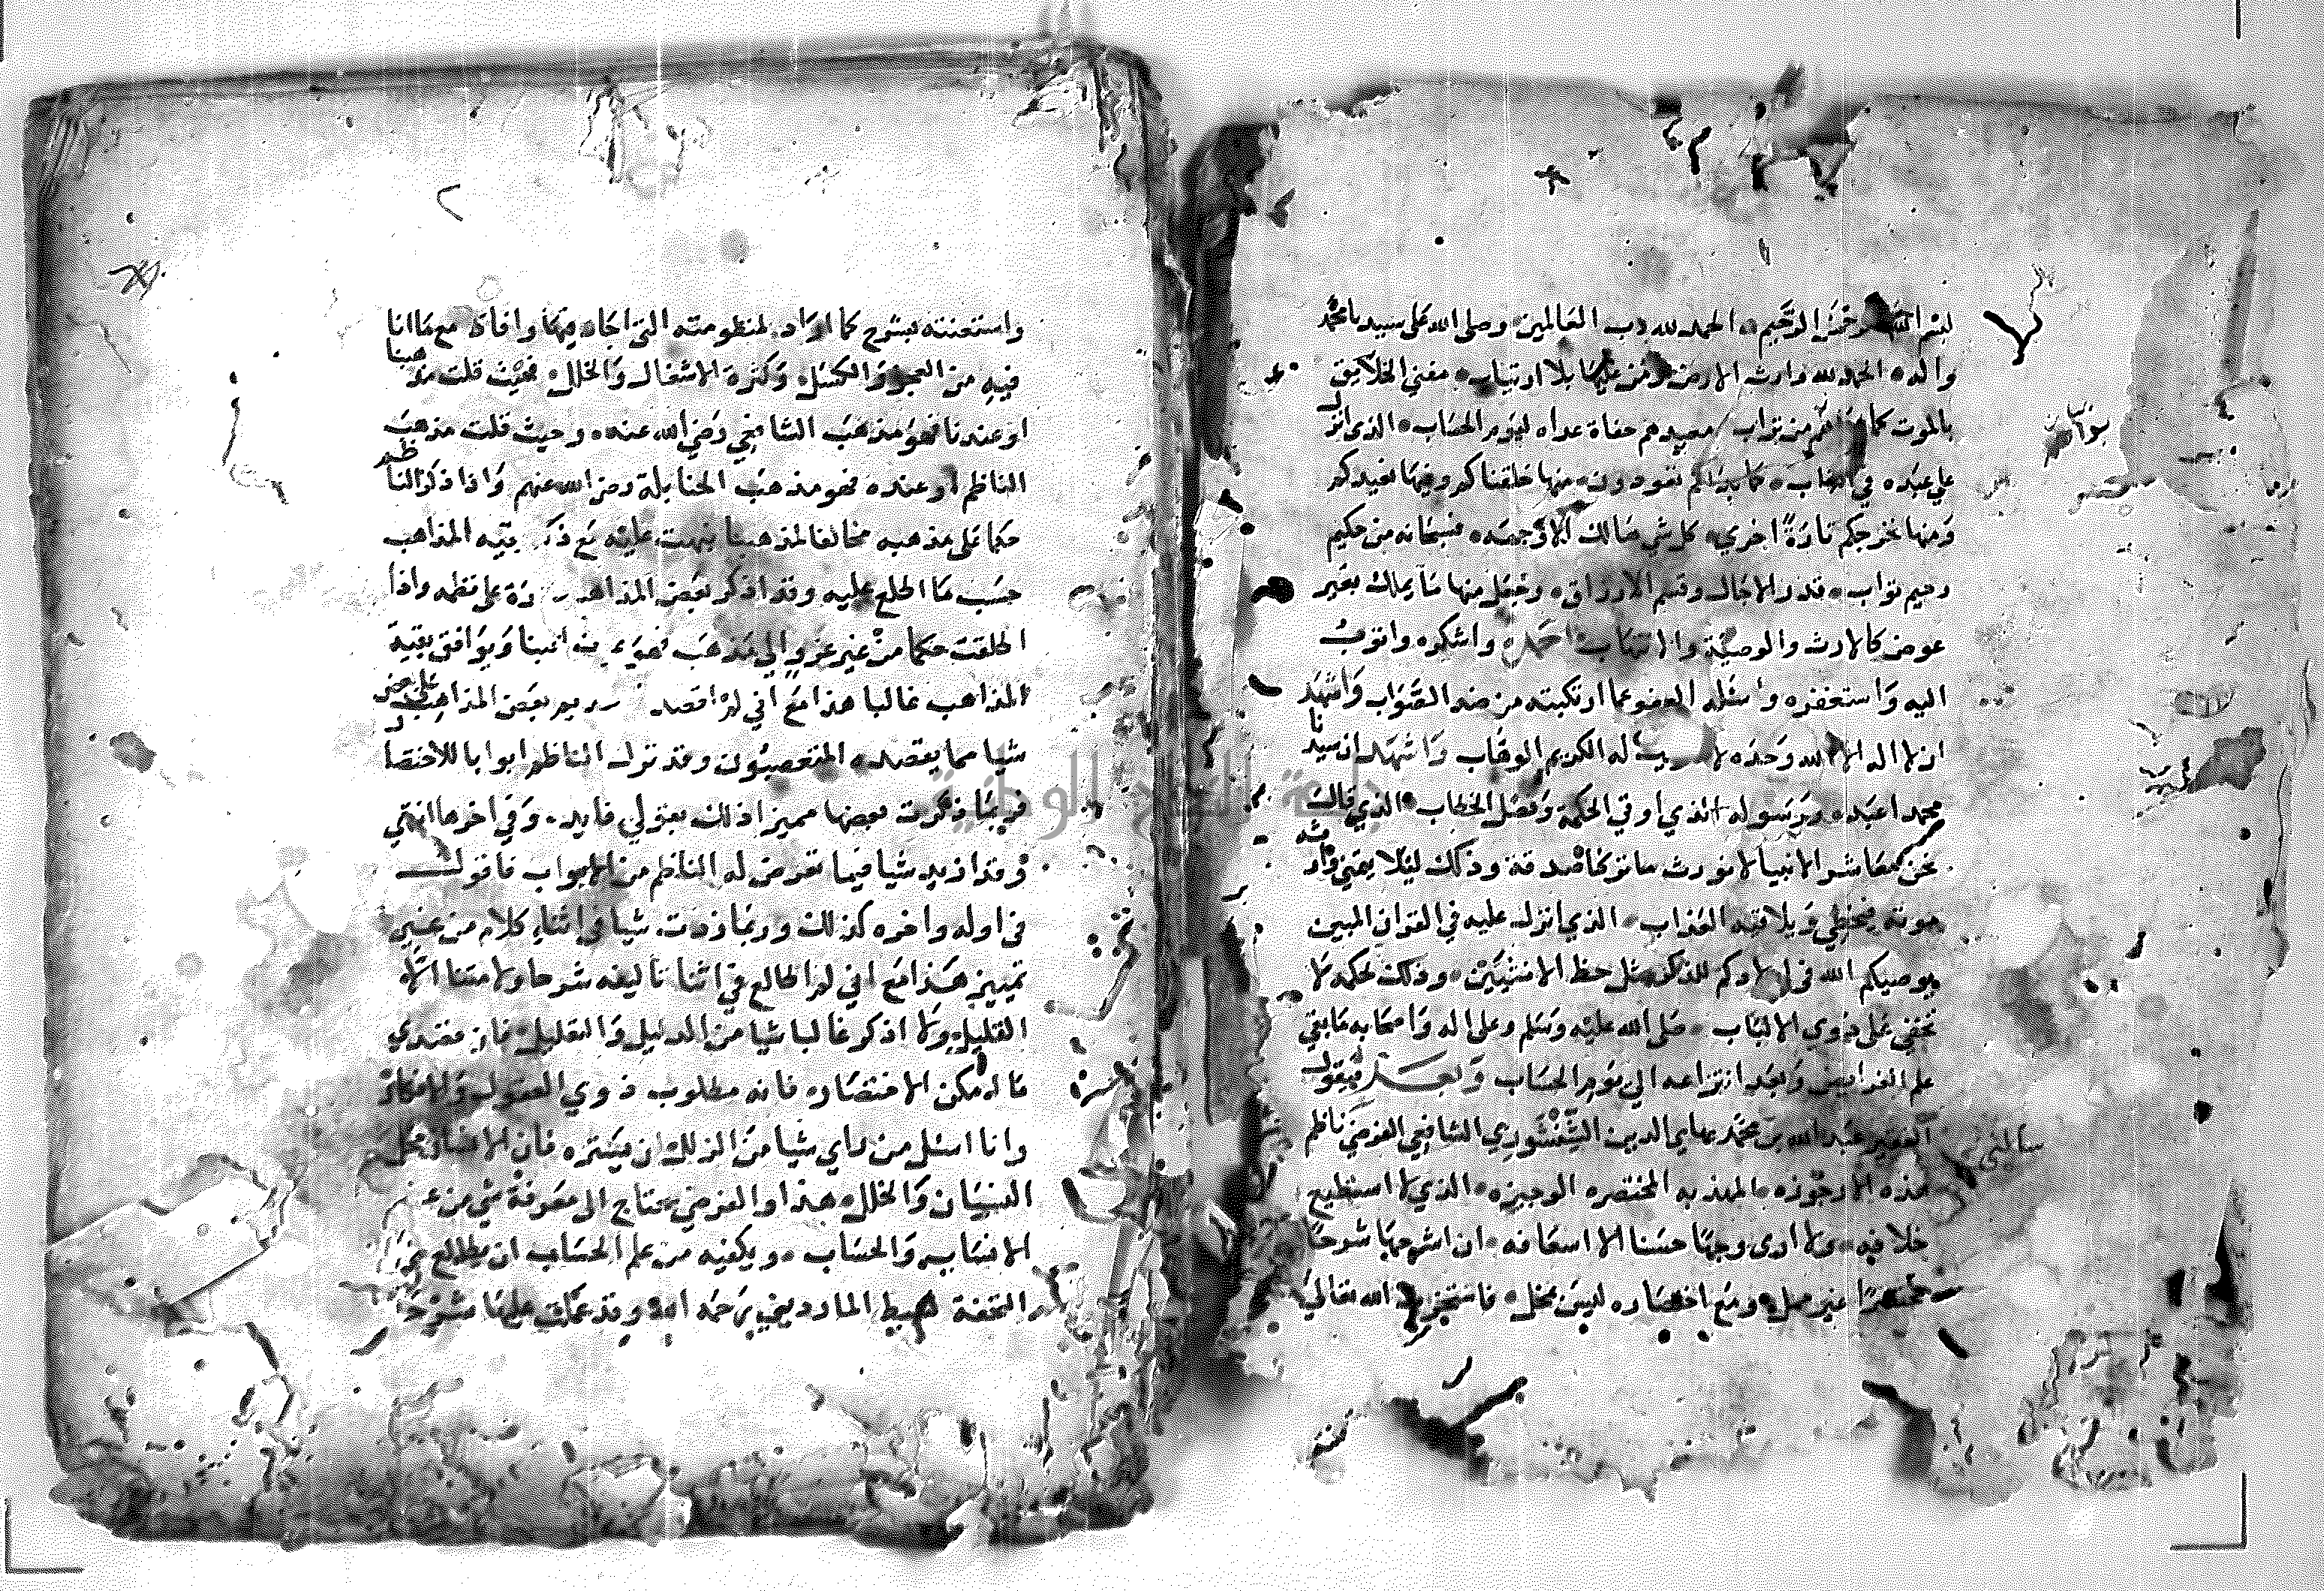 بسم الله الرحمن الرحيم الحمد لله رب العالمين وصلى الله على سيدنا محمد
واله الحمد لله وارث الارض ومن عليها بلا ارتياب مفني الخلايق
بالموت كما من تراب حفاة عراه ليوم الحساب الذي انزل
علي عبده في الكتاب كما بداكم تعودون منها خلقناكم وفيها نعيدكم
ومنها نخرجكم تارة اخري كل شي هالك الا وجهه فسبحانه من حكيم
رحيم تواب قدر الاجال وقسم الارزاق وجعل منها ما يملك بغير
عوض كالارث والوصية والانتهاب احمده واشكره واتوب
اليه واستغفره واسئله العفو عما ارتكبته من ضد الصواب واشهد
ان لا اله الا الله وحده لا له الكريم الوهاب واشهد ان سيدنا
محمدا عبده ورسوله الذي اوتي الحكمة وفصل الخطاب الذي قال
نحن معاشر الانبيا لا نورث ما تركناه صدقة وذلك ليلا يتمني وارثه
موته فيخطي ويلاقيه العذاب الذي انزل عليه في القران المبين
يوصيكم الله في اولادكم للذكر مثل حظ الانثيين وذلك لحكمه لا
تخفي علي ذوي الالباب صلى الله عليه وسلم وعلى اله واصحابه ما بقي
علم الفرايض وبعد انتزاعه الي يوم الحساب وبعد فيقول
الفقير عبد الله بن محمد بهاي الدين الشنشوري الشافعي الفرضي ناظم
هذه الارجوزه المهذبه المختصره الوجيزه الذي لا استطيع
خلافه ولا اري وجها حسنا الا اسعافه ان اشرحها شرحا
مختصرا غير ممل ومع اختصاره ليس بمخل فاستخرت الله تعالي
واستعنته بشرح كما اراد لمنظومته التي اجاد فيها وافاد مع ما انا
فيه من العجز والكسل وكثرة الاشغال والخلل فحيث قلت مذهبنا
او عندنا فهو مذهب الشافعي رضي الله عنه وحيث قلت مذهب
الناظم او عنده فهو مذهب الحنابلة رضي الله عنهم واذا ذكر الناظم
حكما على مذهبه مخالفا لمذهبنا نبهت عليه مع ذكر بقيه المذاهب
حسب ما اطلع عليه وقد اذكر بعض المذاهب زيادة على نظمه واذا
اطلقت حكما من غير عزو الي مذهب فهو ويوافق بقية
المذاهب غالبا هذا مع اني لم اقصد بعض المذاهب علي بعض
شيا مما يقصده المتعصبون وقد ترك الناظم ابوابا للاختصار
فربما ذكرت بعضها مميزا ذلك بقولي فايدة وفي اخرها انتهي
وقد ازيد شيا فيما تعرض له الناظم من الابواب فاقول
في اوله واخره كذلك وربما زدت شيا في اثناء كلام من غير
تمييز هذا مع اني لم اطالع في اثنا تاليفه شرحا ولا متنا الا
القليل ولا اذكر غالبا شيا من الدليل والتعليل فان مقصدي
ما امكن الاختصار فانه مطلوب ذوي العقول والافكار
وانا اسئل من راي شيا من الزلل ان يستره فان الانسان محل
النسيان والخلل هذا والفرضي يحتاج الى معرفة شي من علم
الانساب والحساب ويكفيه من علم الحساب ان يطالع
التحفة لسبط المارديني رحمه الله وقد عملت عليها شرحا